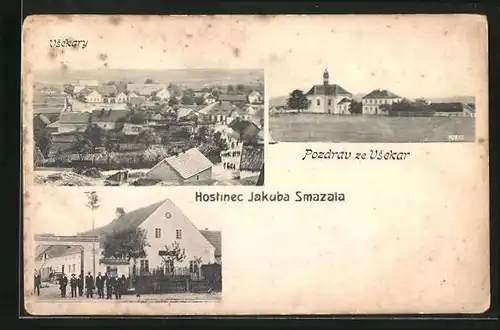 Všekary
Pozdrav ze Všekar
Hostinec Jakuba Smazala